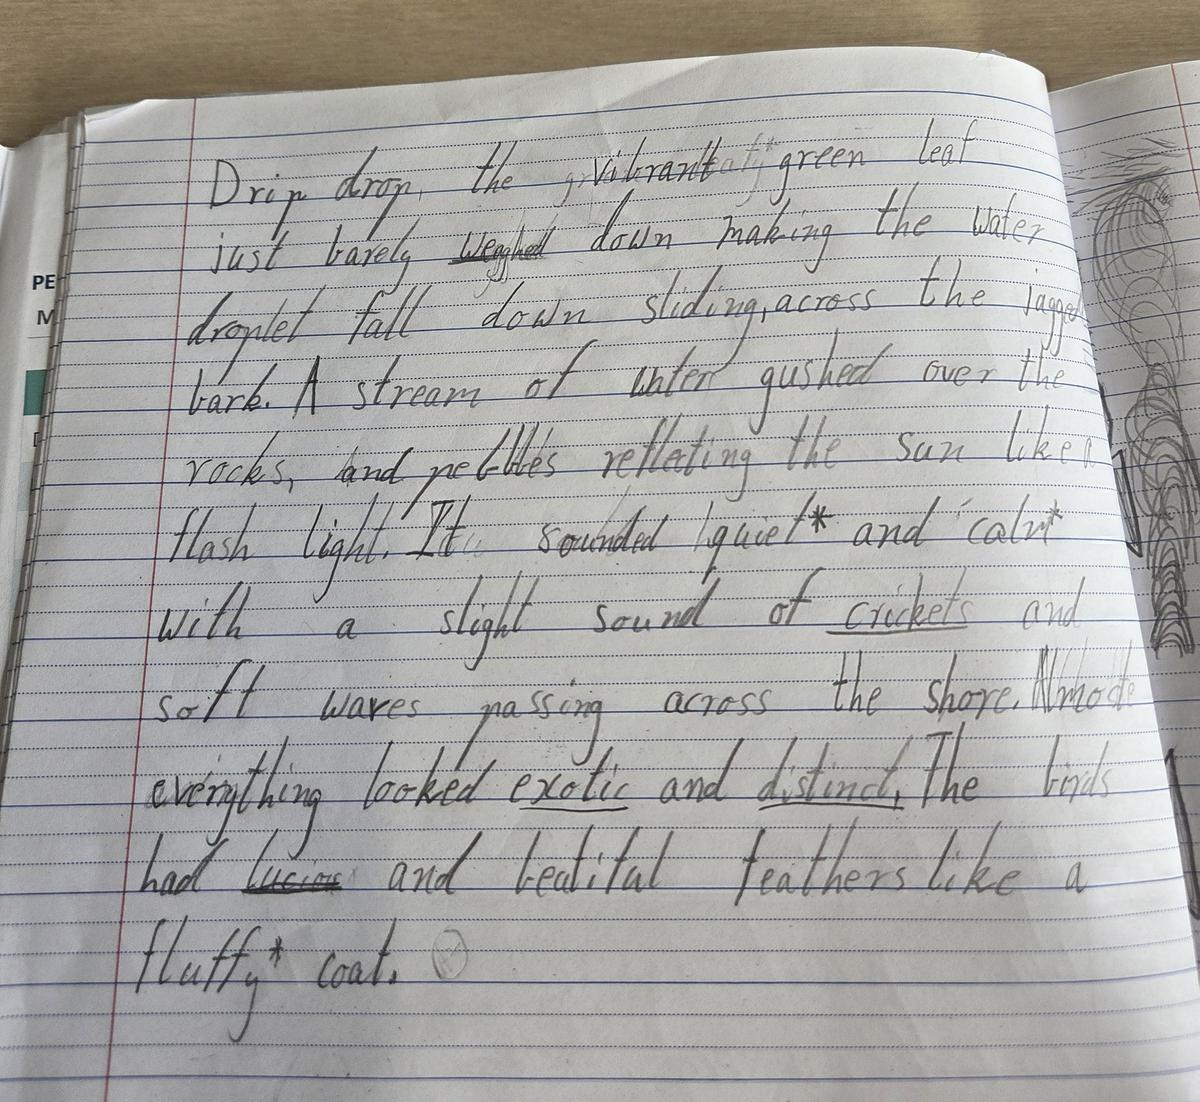 Drip drop, the vibrant* green leaf
just barely weighed down making the water
droplet fall down sliding, across the jagged
bark. A stream of water gushed over the
rocks, and pebbles reflating the sun like a
flash light. It sounded quiet* and calm*
with a slight sound of crickets and
soft waves passing across the shore. Almoste
everything looked exotic and distinct, The birds
had lucious and beatiful feathers like a
fluffy* coat.
PE
M